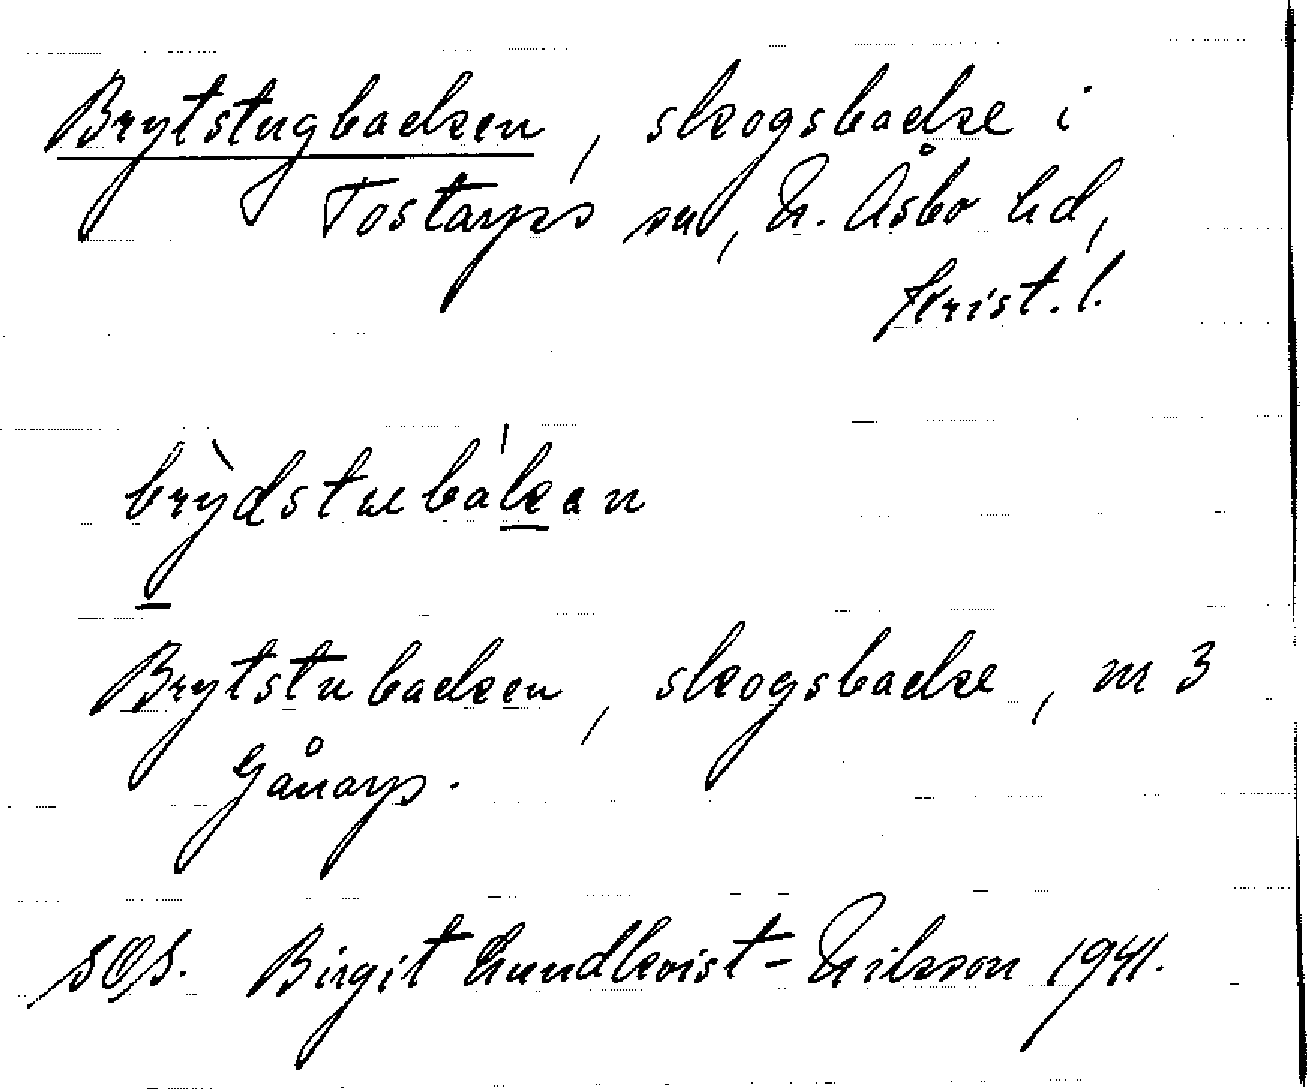 Brytstugbacken, skogsbacke i
Tostarps sn, N. Åsbo hd,
Krist. l.
brỳdstubákan
Brytstubacken, skogsbacke, m 3
Gånarp.
Birgit Lundkvist-Nilsson 1941.